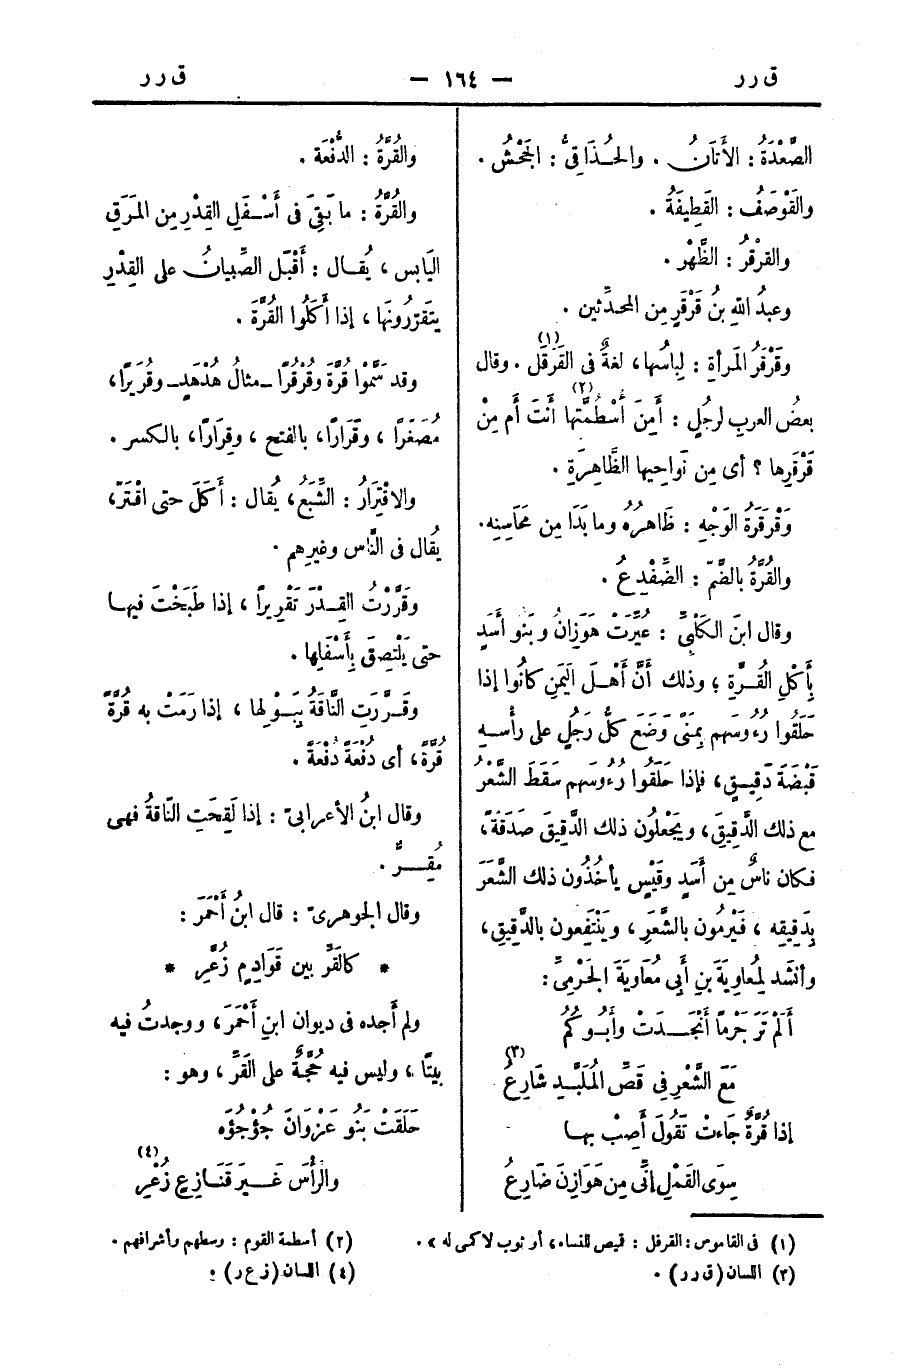 ق ر ر — ١٦٤ — ق ر ر
الصَّعْدَةُ : الأَتَانُ . والحُذَاقِىُّ : الجَحْشُ .
والقَوْصَفُ : القَطِيفَةُ .
والقرْقُر : الظَّهْر .
وعبدُ اللّٰهِ بنُ قَرْقَرٍ مِن المحدِّثين .
وقَرْقَرُ المَرأةِ : لِبَاسُها ، لغةٌ فى القَرْقَل (١) . وقال
بعضُ العربِ لرجُلٍ : أَمِنَ أُسْطُمَّتِها (٢) أنتَ أم مِنْ
قَرْقَرِها ؟ أى مِن نَواحِيها الظَّاهِرَةِ .
وقَرقَرَةُ الوَجْهِ : ظَاهِرُهُ وما بَدَا مِن مَحَاسِنِه .
والقُرَّةُ بالضّمّ : الضِّفْدِعُ .
وقال ابنَ الكَلْبِىِّ : عُيِّرَتْ هَوَزِانُ وبَنو أَسَدٍ
بِأَكْلِ القُرَّةِ ؛ وذلك أَنَّ أَهْلَ اليَمنِ كانُوا إذا
حَلَقُوا رُءُوسَهم بِمنًى وَضَعَ كلُّ رَجُلٍ على رأْسِهِ
قبْضَةَ دَقِيقٍ ، فإذا حَلَقُوا رُءُوسَهم سَقَطَ الشَّعْرُ
مع ذلك الدَّقِيقَ ، ويَجْعلون ذلك الدَّقيقَ صَدَقَةً ،
فكان ناسٌ مِن أَسَدٍ وقَيْسٍ يأخُذُون ذلك الشَّعَرَ
بِدَقِيقِه ، فيَرْمُون بالشَّعَرِ ، ويَنْتَفِعون بالدَّقِيقِ ،
وأنشَد لِمُعاوِيَةَ بنِ أَبِى مُعَاوِيَةَ الجَرْمِىِّ :
أَلَمْ تَرَ جَرْماً أَنْجَدَتْ وأَبُوكُمُ
مَعَ الشَّعْرِ فِى قَصِّ المُلَبَّدِ شَارِعُ (٣)
إذا قُرَّةٌ جَاءتْ تَقُولَ أَصِبْ بِها
سِوَى القَمْلِ إنِّى مِن هَوَازِنَ ضَارِعُ
والقُرَّةُ : الدُّفْعَة .
والقُرَّةُ : ما بَقِىَ فى أَسْفَلِ القِدْرِ مِن المَرَقِ
اليَابِس ، يُقال : أَقْبَل الصِّبيانُ على القِدْرِ
يتَقرَّرُونَها ، إذا أَكَلُوا القُرَّةَ .
وقد سَمَّوا قُرَّةَ وقُرْقُرًا – مثالُ هُدْهَدٍ – وقُرَيرًا ،
مُصَغَرًا ، وقَرَارًا ، بالفتح ، وقِرارًا ، بالكسر .
والاقْتِرَارُ : الشِّبَعُ ، يُقال : أَكَلَ حتى اقْتَرّ ،
يُقال فى النَّاس وغيرِهم .
وقَرَّرْتُ القِدْرَ تَقْرِيراً ، إذا طَبَخْتَ فيها
حتى يَلْتصِقَ بِأَسْفَلِها .
وقَرَّرَت النَّاقَةُ بِبَوْلِها ، إذا رَمَتْ به قُرَّةً
قُرَّةً ، أى دُفْعَةً دُفْعَةً .
وقال ابنُ الأعرابىّ : إذا لَقِحَتِ النّاقةُ فهى
مُقِرٌّ .
وقال الجوهرىّ : قال ابنُ أَحْمَرَ :
* كالقَرِّ بين قَوَادِمٍ زُعْرِ *
ولم أَجده فى ديوان ابنِ أَحْمَرَ ، ووجدتُ فيه
بيتًا ، وليس فيه حُجَّةٌ على القَرِّ ، وهو :
حَلَقَتْ بَنُو عَزْوَانَ جُؤْجُؤَه
والرأْسَ غَيرَ قَنَازِعٍ زُعْرِ (٤)
(١) فى القاموس : القرقل : قيص للنساء ، أو ثوب لا كمى له » .
(٢) أسطمة القوم : وسطهم وأشرافهم .
(٣) اللسان (ق ر ر) .
(٤) اللسان (زع ر) .